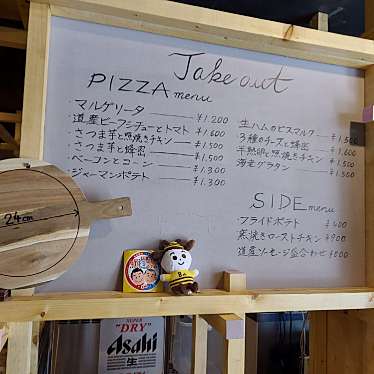 Take out
PIZZA menu
・マルゲリータ ¥1.200
・道産ビーフシチューとトマト ¥1.600
・さつま芋と照焼きチキン ¥1.500
・さつま芋と蜂蜜 ¥1.500
・ベーコンとコーン ¥1.300
・ジャーマンポテト ¥1.300
生ハムのビスマルク ¥1.500
3種のチーズと蜂蜜 ¥1.600
半熟卵と照焼きチキン ¥1.500
海老グラタン ¥1.500
SIDE menu
・フライドポテト ¥400
・窯焼きローストチキン ¥900
・道産ソーセージ盛合わせ
24cm
SUPER
"DRY"
Asahi
生